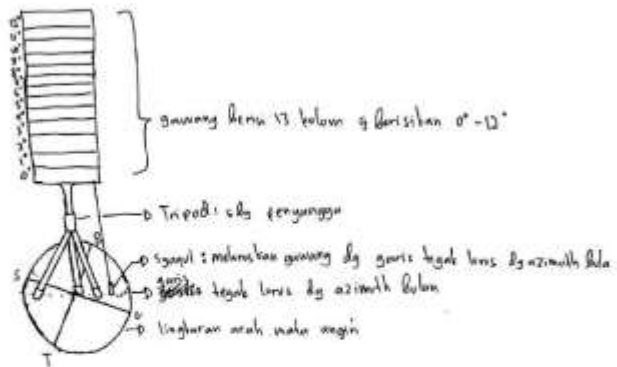 gawang berisi 13 kolom yg berisikan 0° - 12°
Tripod : sbg penyangga
Syaqul : meluruskan gawang dg garis tegak lurus dg azimuth bula
garis tegak lurus dg azimuth bulan
S
T
lingkaran arah mata angin